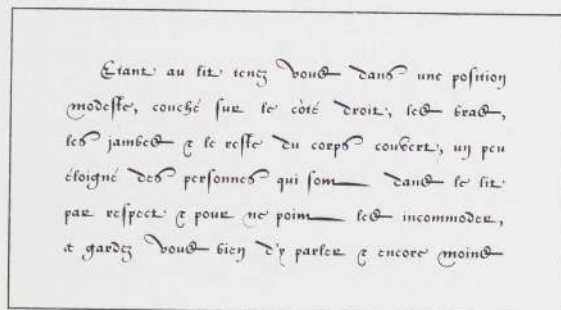 Etant au lit tenez vous dans une position
modeste, couché sur le côté droit, les bras,
les jambes & le reste du corps couvert, un peu
éloigné des personnes qui sont dans le lit
par respect & pour ne point les incommoder,
& gardez vous bien d'y parler & encore moins